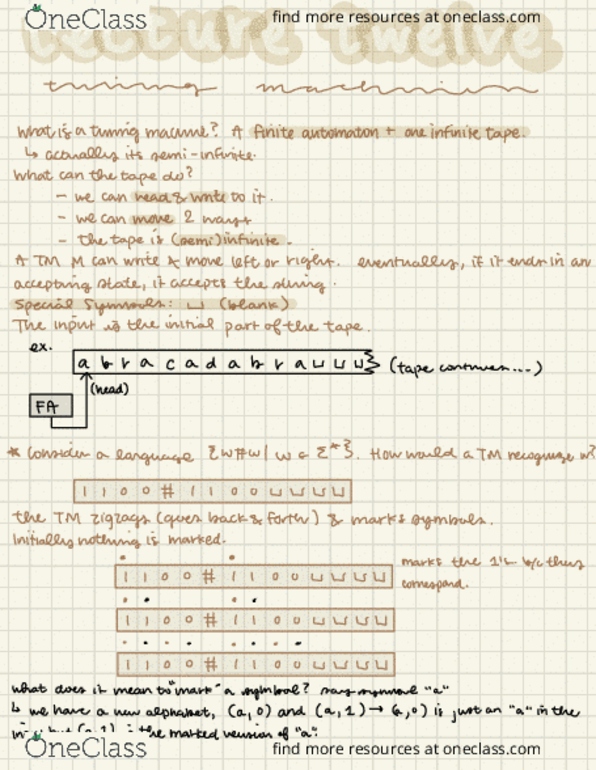 OneClass
find more resources at oneclass.com
lecture twelve
turing machines
What is a turing machine? A finite automaton + one infinite tape.
↳ actually its semi-infinite.
What can the tape do?
- we can read & write to it.
- we can move 2 ways
- the tape is (semi)infinite.
A TM M can write & move left or right. eventually, if it ends in an
accepting state, it accepts the string.
Special Symbols: ⊔ (blank)
The input is the initial part of the tape.
ex.
a b r a c a d a b r a ⊔ ⊔ ⊔ (tape continues...)
(head)
FA
* Consider a language {w#w | w ∈ Σ*}. How would a TM recognize
1 1 0 0 # 1 1 0 0 ⊔ ⊔ ⊔ ⊔
the TM zigzags (goes back & forth) & marks symbols.
Initially nothing is marked.
1 1 0 0 # 1 1 0 0 ⊔ ⊔ ⊔ ⊔
marks the 1's b/c they
correspond.
1 1 0 0 # 1 1 0 0 ⊔ ⊔ ⊔ ⊔
1 1 0 0 # 1 1 0 0 ⊔ ⊔ ⊔ ⊔
what does it mean to "mark" a symbol? say symbol "a"
↳ we have a new alphabet, (a,0) and (a,1) → (a,0) is just an "a" in the
but (a,1) is the marked version of "a".
OneClass
find more resources at oneclass.com